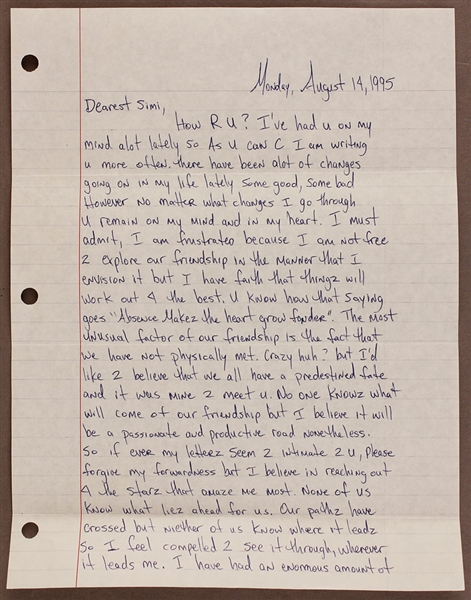 Monday, August 14, 1995
Dearest Simi,
How R U? I've had u on my
mind alot lately so As U can C I am writing
u more often. there have been alot of changes
going on in my life lately some good, some bad
However No matter what changes I go through
U remain on my mind and in my heart. I must
admit, I am frustrated because I am not free
2 explore our friendship in the manner that I
envision it but I have faith that thingz will
work out 4 the best. U know how that saying
goes "Absence Makez the heart grow fonder". The most
unusual factor of our friendship is the fact that
we have not physically met. Crazy huh? but I'd
like 2 believe that we all have a predestined fate
and it was mine 2 meet u. No one knowz what
will come of our friendship but I believe it will
be a passionate and productive road nonetheless.
So if ever my letterz seem 2 intimate 2 u, please
forgive my forwardness but I believe in reaching out
4 the starz that amaze me most. None of us
know what liez ahead for us. Our pathz have
crossed but niether of us know where it leadz
So I feel compelled 2 see it through, wherever
it leads me. I have had an enormous amount of